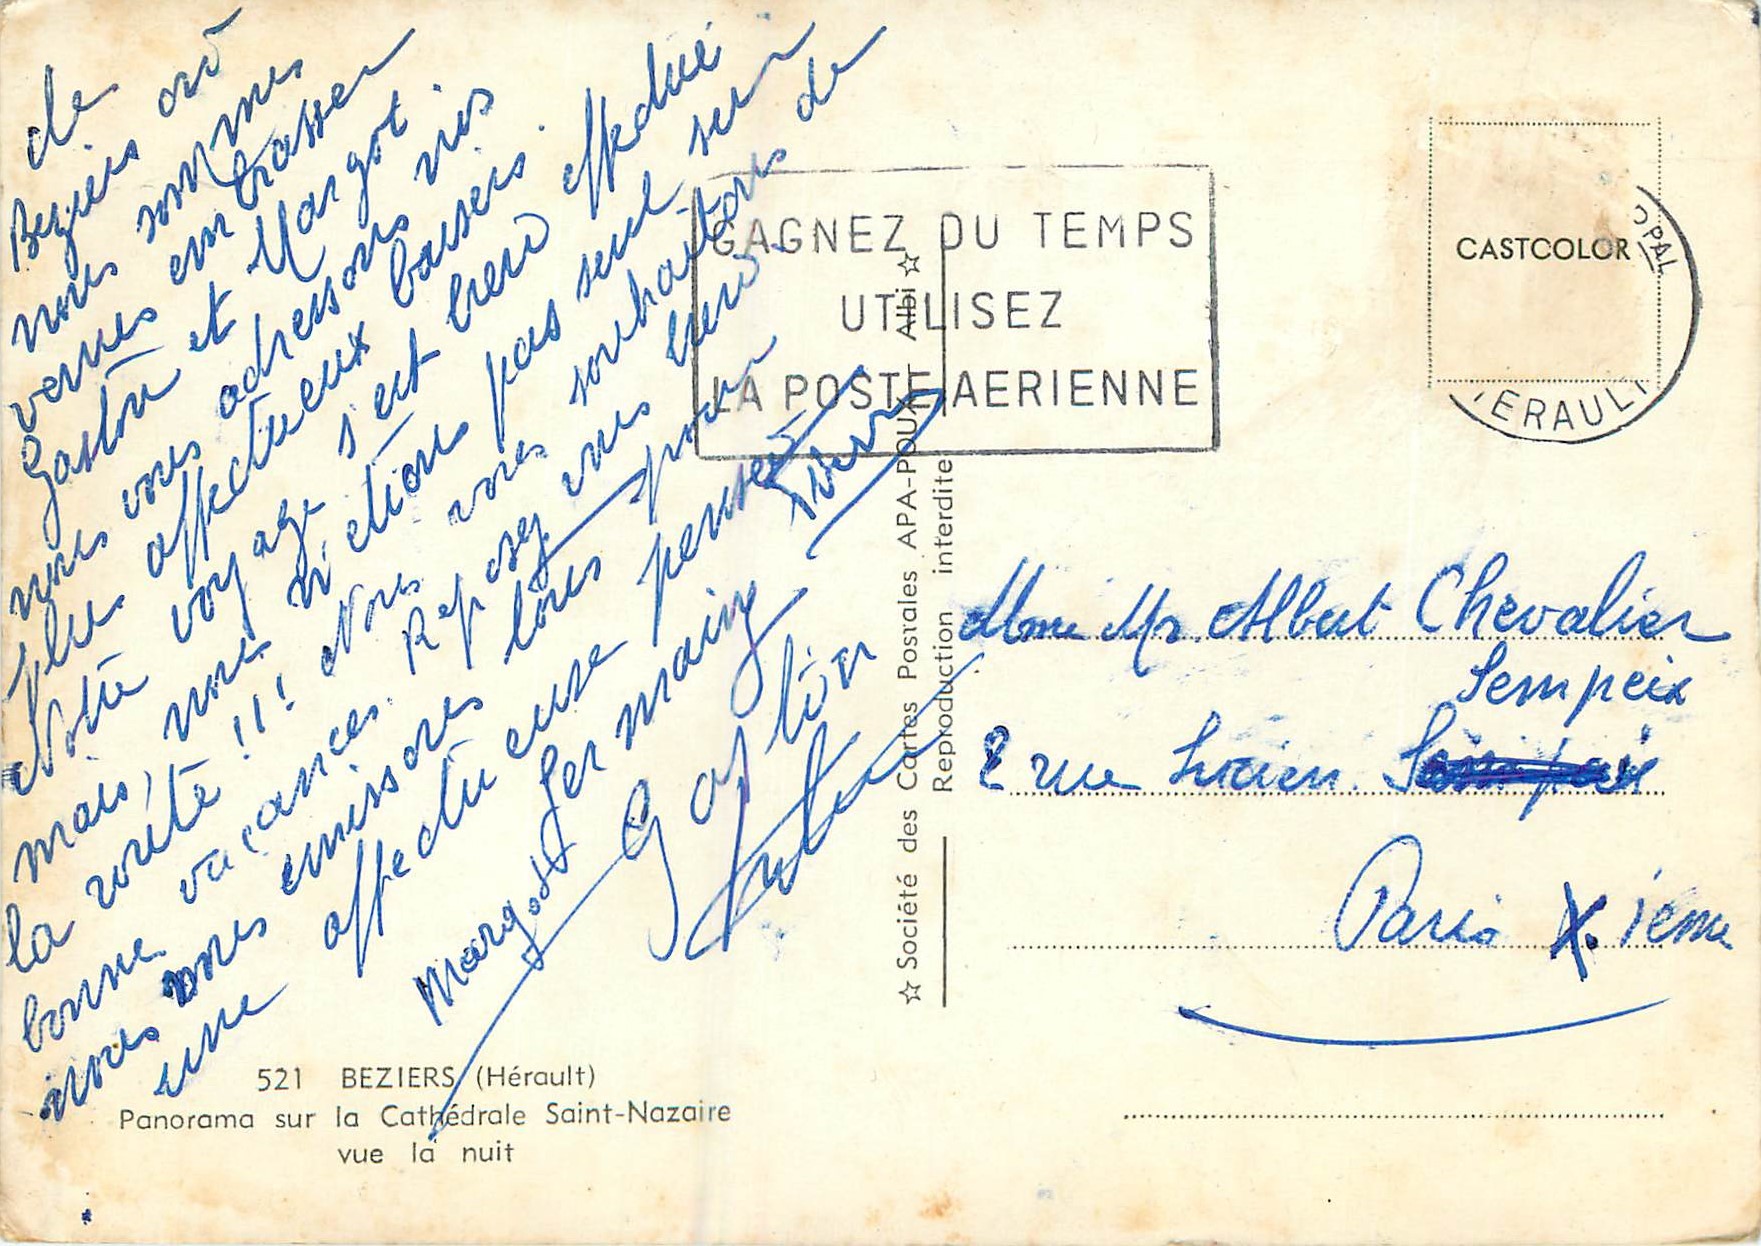 de
Beziers où
nous sommes
venus embrasser
Gaston et Margot.
nous vous adressons nos
plus affectueux baisers.
Notre voyage s'est bien effectué
mais, nous n'étions pas seul sur
la route !!! Nous vous souhaitons de
bonne vacances. Reposez vous bien.
nous vous embrassons tous pour
une affectueuse pensée
Germaine
Margot
Gaston
521 BEZIERS (Hérault)
Panorama sur la Cathédrale Saint-Nazaire
vue la nuit
☆ Société des Cartes Postales APA-POUX - Albi ☆
Reproduction interdite
GAGNEZ DU TEMPS
UTILISEZ
LA POSTE AERIENNE
CASTCOLOR
OPAL
HERAULT
Mme Mr Albert Chevalier
Sempeix
2 rue Lucien
Paris X. ième